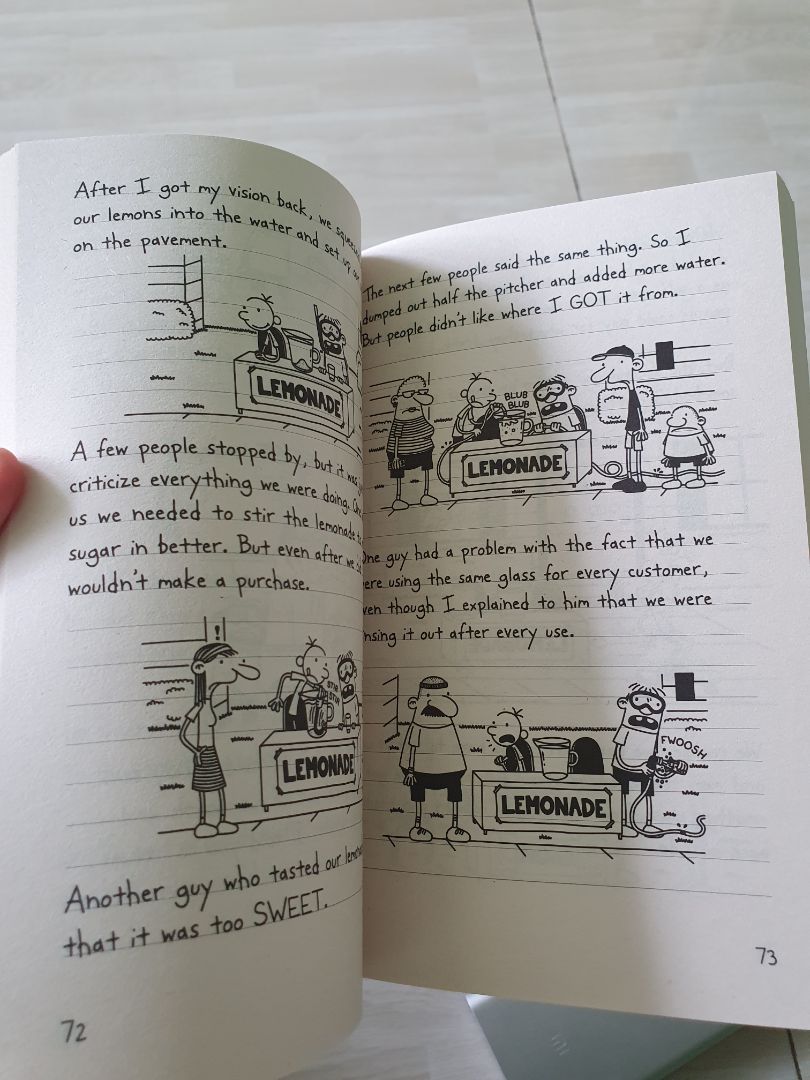 After I got my vision back, we
our lemons into the water and set up
on the pavement.
LEMONADE
A few people stopped by, but it was
criticize everything we were doing.
us we needed to stir the lemonade
sugar in better. But even after we
wouldn't make a purchase.
!
STIR
STIR
LEMONADE
Another guy who tasted our
that it was too SWEET.
72
The next few people said the same thing. So I
dumped out half the pitcher and added more water.
But people didn't like where I GOT it from.
BLUB
BLUB
LEMONADE
One guy had a problem with the fact that we
ere using the same glass for every customer,
ven though I explained to him that we were
nsing it out after every use.
FWOOSH
LEMONADE
73